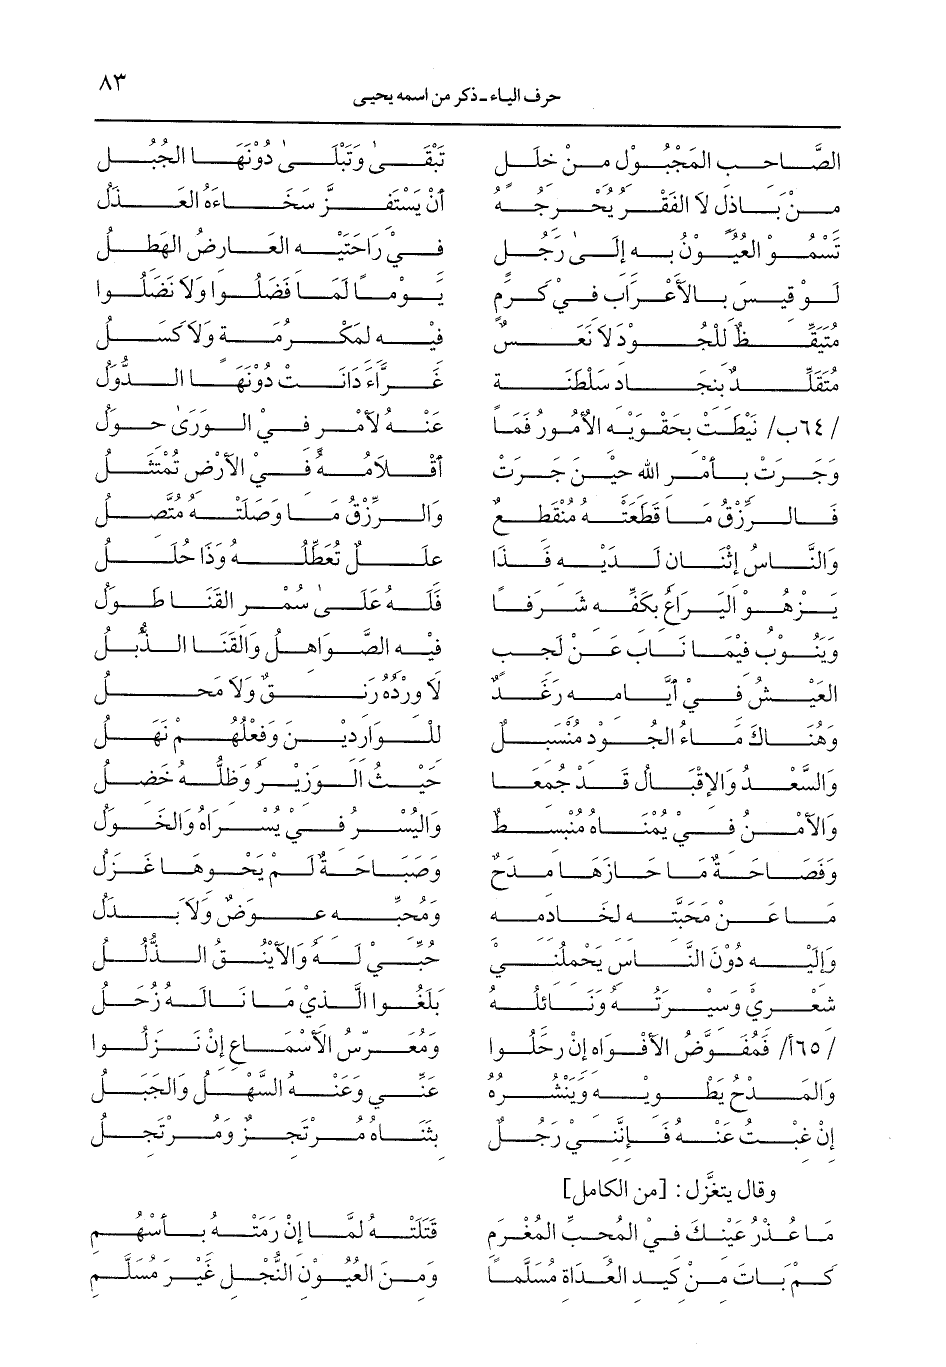 حرف الياء ـ ذكر من اسمه يحيى ٨٣
الصَّاحب المَجْبُوْل منْ خلَل تَبْقَىٰ وَتَبْلَىٰ دُوْنَهَا الجُبُلُ
منْ بَاذل لاَ الفَقْرُ يُحْرجُهُ أنْ يَسْتَفزَّ سَخَاءَهُ العَذَلُ
تَسْمُو العُيُوْنُ به إلَىٰ رَجُل فيْ رَاحَتَيْه العَارضُ الهَطلُ
لَوْ قيسَ بالأعْرَاب فيْ كَرَم يَوْمًا لَمَا فَضَلُوا وَلاَ نَضَلُوا
مُتَيَقِّظٌ للْجُوْد لاَ نَعَسٌ فيْه لمَكْرُمَة وَلاَ كَسَلُ
مُتَقَلِّدٌ بنجَاد سَلْطَنَة غَرَّاءَ دَانَتْ دُوْنَهَا الدُّوَلُ
/٦٤ب/ نيْطَتْ بحَقْوَيْه الأُمُورُ فَمَا عَنْهُ لأمْر فيْ الوَرَىٰ حوَلُ
وَجَرَتْ بأمْر الله حيْنَ جَرَتْ أقْلاَمُهُ فيْ الأرْض تُمْتَثَلُ
فَالرِّزْقُ مَا قَطَعَتْهُ مُنْقَطعٌ وَالرِّزْقُ مَا وَصَلَتْهُ مُتَّصلُ
وَالنَّاسُ إثْنَان لَدَيْه فَذَا علَلٌ تُعَطِّلُهُ وَذَا خُلَلُ
يَزْهُو اليَرَاعُ بكَفِّه شَرَفًا فَلَهُ عَلَىٰ سُمْر القَنَا طَوْلُ
وَيَنُوْبُ فيْمَا نَابَ عَنْ لَجب فيْه الصَّوَاهلُ وَالقَنَا الذُّبُلُ
العَيْشُ فيْ أيَّامه رَغَدٌ لاَ ورْدُهُ رَنْقٌ وَلاَ مَحلُ
وَهُنَاكَ مَاءُ الجُوْد مُنْسَبلٌ للْوَارديْنَ وَفعْلُهُمْ نَهَلُ
وَالسَّعْدُ وَالإقْبَالُ قَدْ جُمعَا حَيْثُ الوَزيْرُ وَظلُّهُ خَضلُ
وَالأمْنُ فيْ يُمْنَاهُ مُنْبَسطٌ وَاليُسْرُ فيْ يُسْرَاهُ وَالخَوَلُ
وَفَصَاحَةٌ مَا حَازَهَا مدَحٌ وَصَبَاحَةٌ لَمْ يَحْوهَا غَزَلُ
مَا عَنْ مَحَبَّته لخَادمه وَمُحبِّه عوَضٌ وَلاَ بَدَلُ
وَإلَيْه دُوْنَ النَّاس يَحْملُنيْ حُبِّيْ لَهُ وَالأيْنُقُ الذُّلُلُ
شعْريْ وَسيْرَتُهُ وَنَائلُهُ بَلَغُوا الَّذيْ مَا نَالَهُ زُحَلُ
/٦٥أ/ فَمُفَوَّضُ الأفْوَاه إنْ رَحَلُوا وَمُعَرَّسُ الأسْمَاع إنْ نَزَلُوا
وَالمَدْحُ يَطْويْه وَيَنْشُرُهُ عَنِّي وَعَنْهُ السَّهْلُ وَالجَبَلُ
إنْ غبْتُ عَنْهُ فَإنَّنيْ رَجُلٌ بثَنَاهُ مُرْتَجزٌ وَمُرْتَجلُ
وقال يتغزَّل: [من الكامل]
مَا عُذْرُ عَيْنكَ فيْ المُحبِّ المُغْرَم قَتَلَتْهُ لَمَّا إنْ رَمَتْهُ بأسْهُم
كَمْ بَاتَ منْ كَيد العُدَاة مُسَلَّمًا وَمنَ العُيُوْن النُّجْل غَيْرَ مُسَلَّم